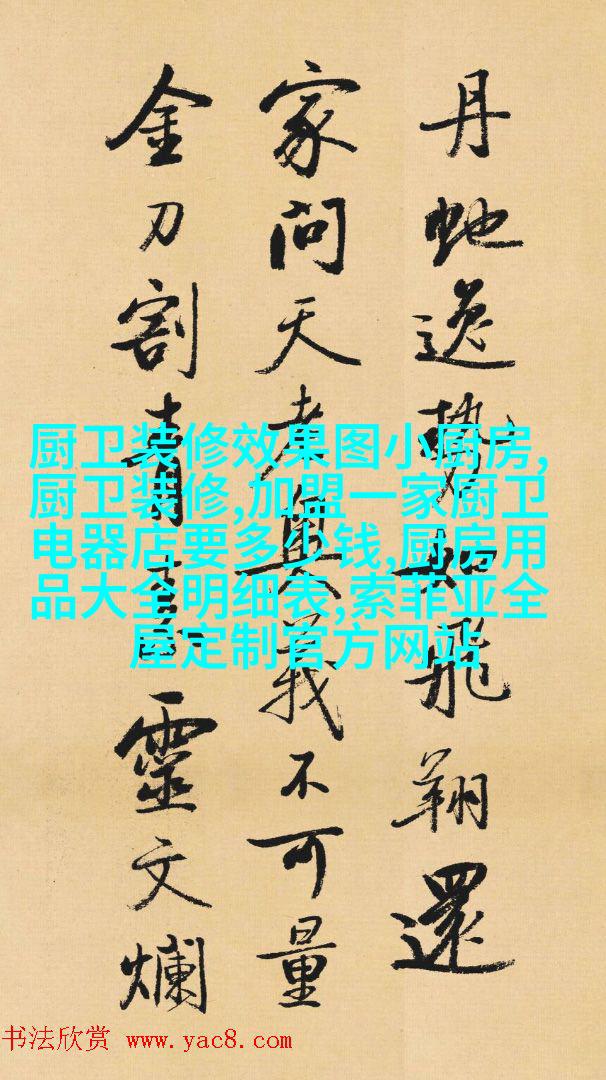 丹虵逸勢如飛翔還
家問天老奧義不可量
金刀割青素靈文爛
厨卫装修效果图小厨房,
厨卫装修,加盟一家厨卫
电器店要多少钱,厨房用
品大全明细表,索菲亚全
屋定制官方网站
书法欣赏 www.yac8.com